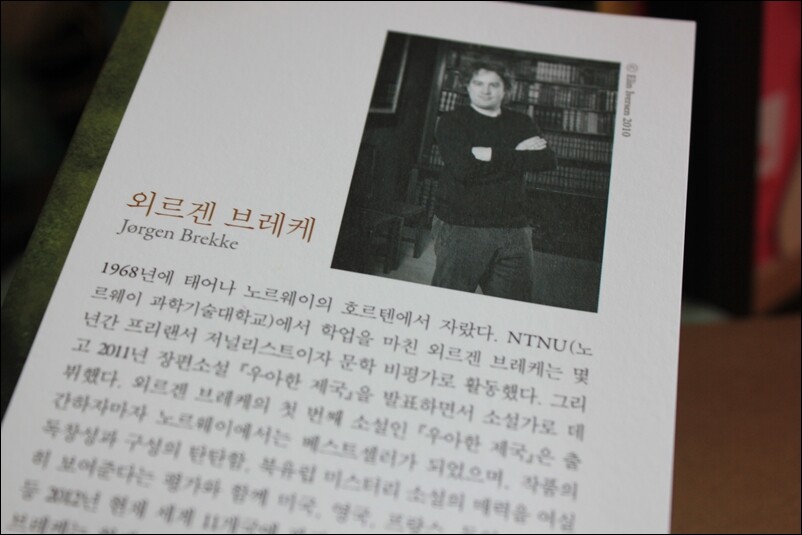 ⓒ Elin Iversen 2010
외르겐 브레케
Jørgen Brekke
1968년에 태어나 노르웨이의 호르텐에서 자랐다. NTNU(노
르웨이 과학기술대학교)에서 학업을 마친 외르겐 브레케는 몇
년간 프리랜서 저널리스트이자 문학 비평가로 활동했다. 그리
고 2011년 장편소설 『우아한 제국』을 발표하면서 소설가로 데
뷔했다. 외르겐 브레케의 첫 번째 소설인 『우아한 제국』은 출
간하자마자 노르웨이에서는 베스트셀러가 되었으며, 작품의
독창성과 구성의 탄탄함, 북유럽 미스터리 소설의 매력을 여실
히 보여준다는 평가와 함께 미국, 영국, 프랑스,
등 2012년 현재 세계 11개국에
브레케는